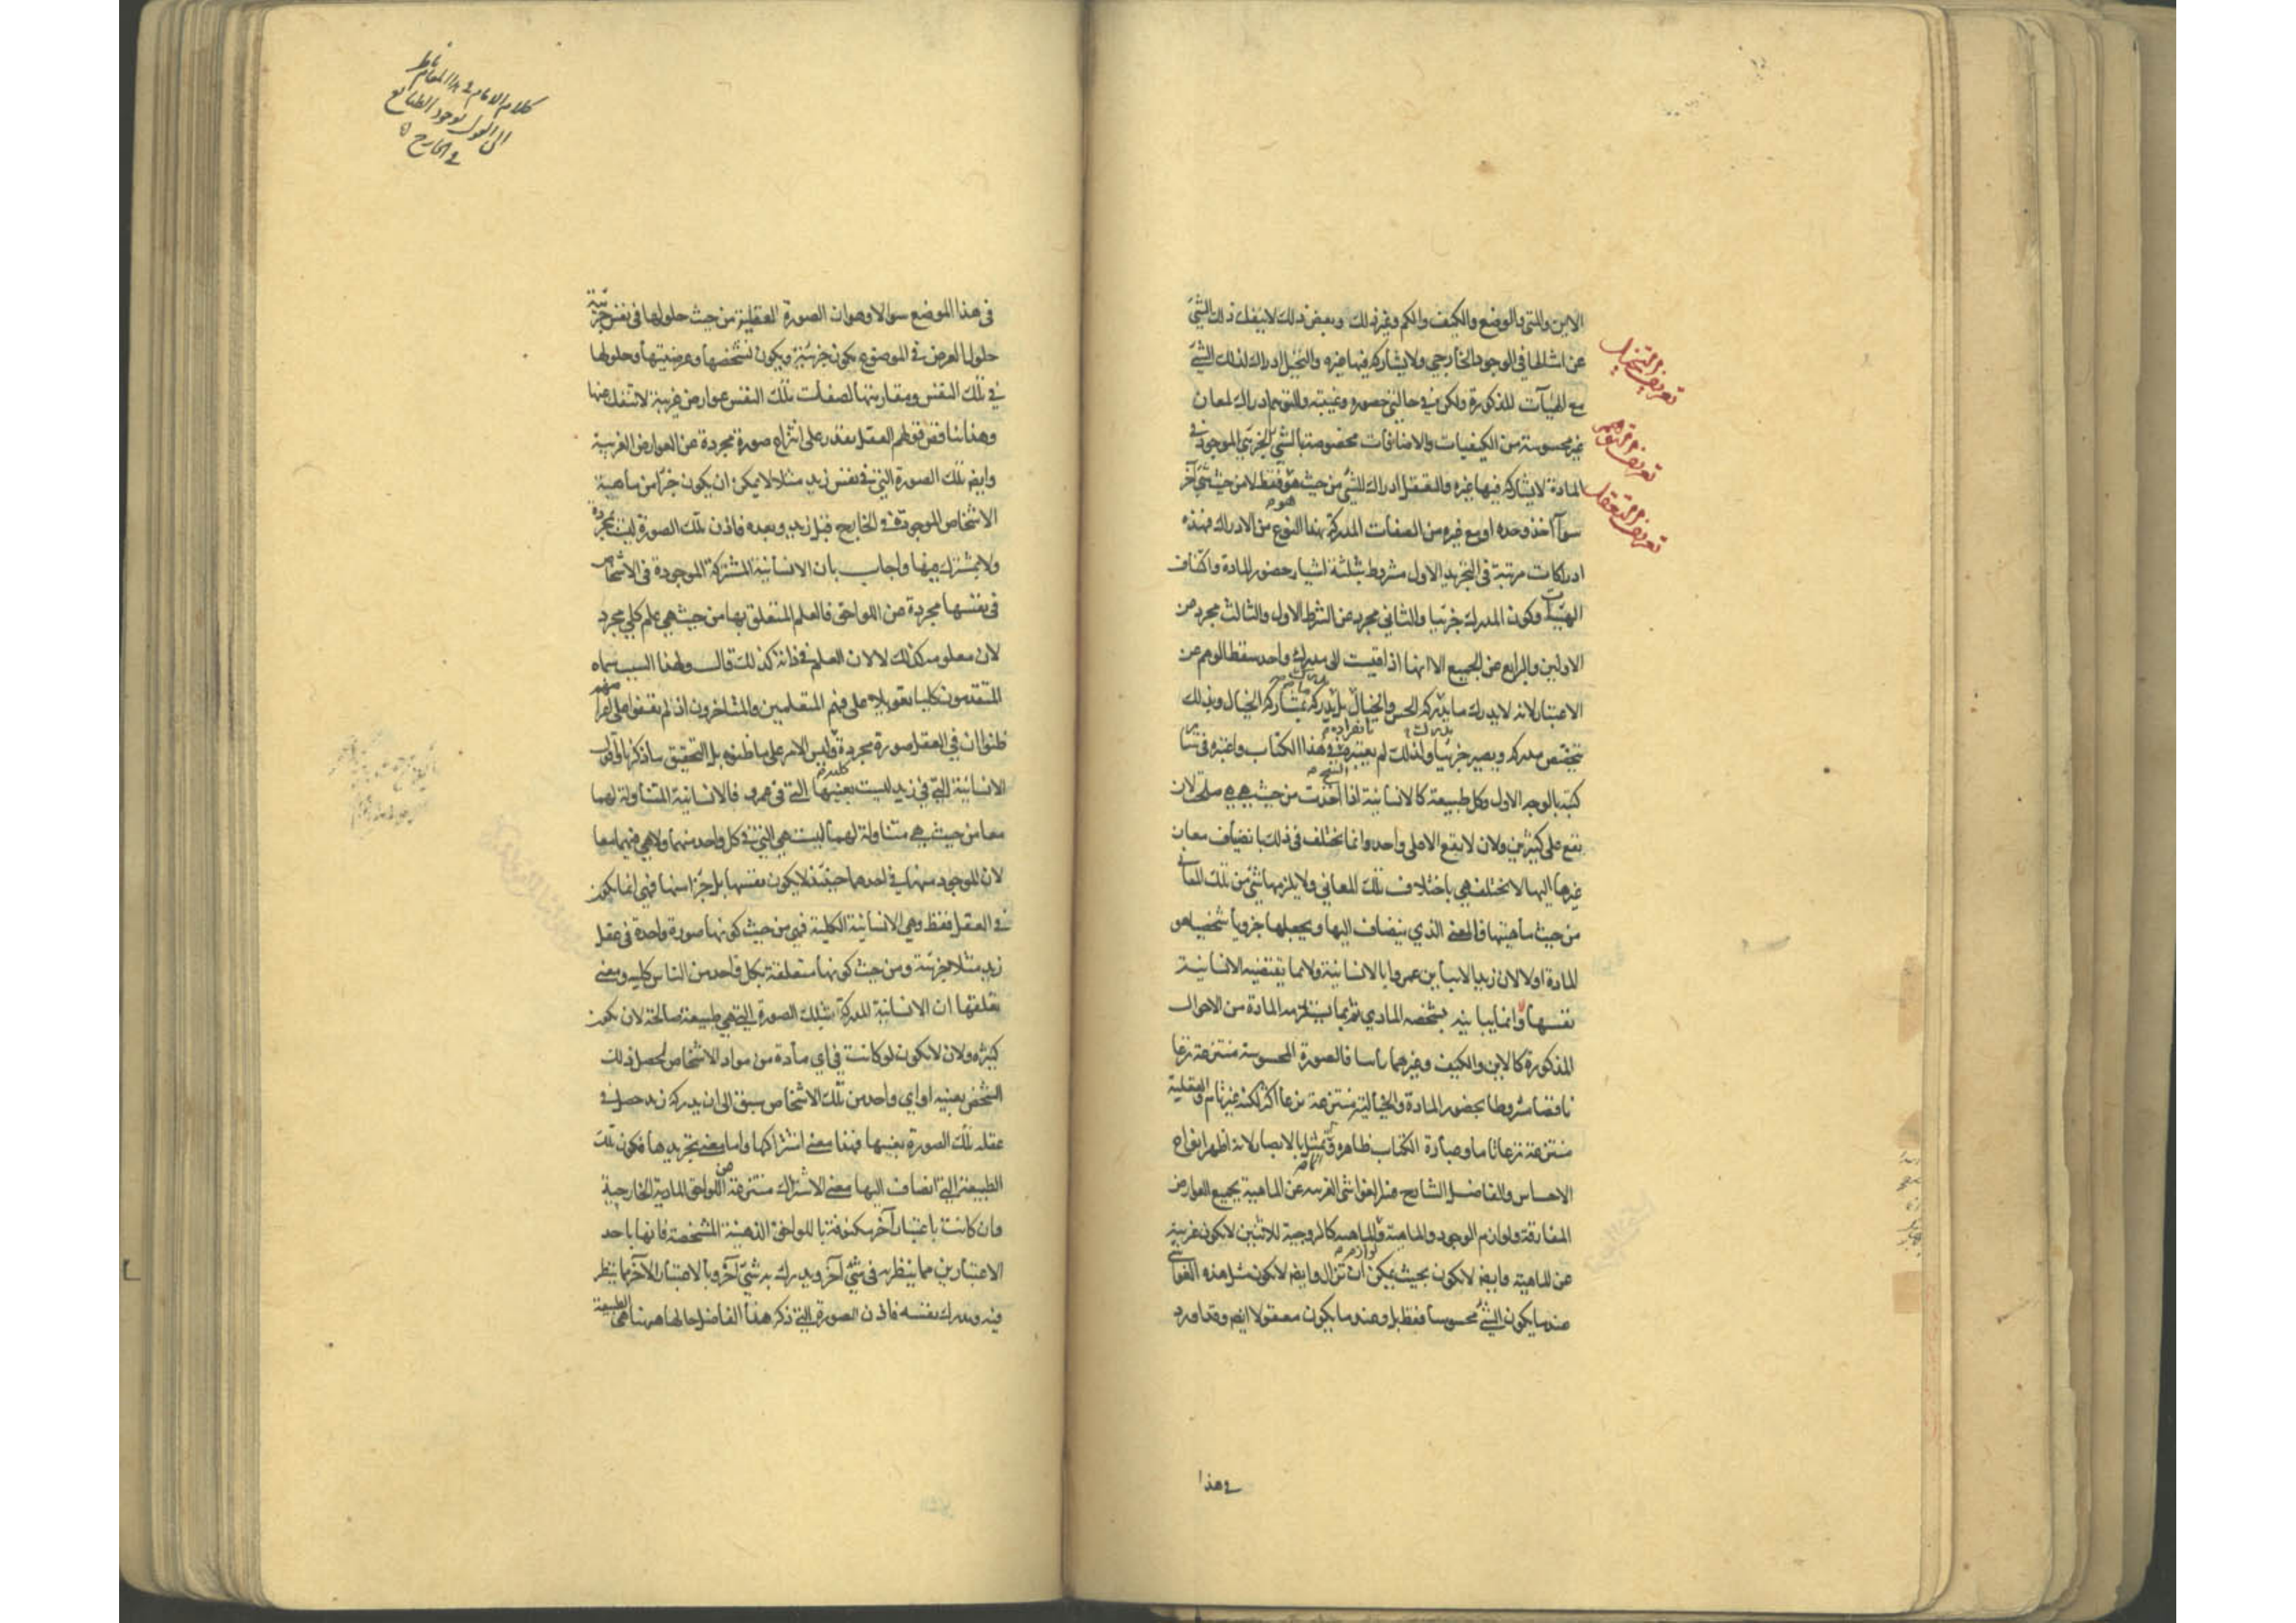 الاين والمتى والوضع والكيف والكم وغير ذلك وبعض ذلك لا ينفك ذلك الشئ
عن امثالها في الوجود الخارجي ولا يشاركه فيها غيره والتخيل ادراك لذلك الشئ
مع الهيآت المذكورة ولكن في حالتي حضوره وغيبته والتوهم ادراك لمعان
غير محسوسة من الكيفيات والاضافات مخصوصة بالشئ الجزئي الموجود في
المادة لا يشاركه فيها غيره والتعقل ادراك للشئ من حيث هو هو فقط لا من حيث شئ آخر
سوآ اخذ وحده او مع غيره من الصفات المدركة بهذا النوع من الادراك فهذه
ادراكات مرتبة في التجريد الاول مشروط بثلثة اشياء حضور المادة واكتناف
الهيآت وكون المدرك جزئيا والثاني مجرد عن الشرط الاول والثالث مجرد عن
الاولين والرابع عن الجميع الا انها اذا قيست الى مدرك واحد سقط الوهم عن
الاعتبار لانه لا يدرك ما يدركه الحس والخيال بل يدركه بمشاركة الخيال وبذلك
يتخصص مدركه ويصير جزئيا ولذلك لم يعتبره في هذا الكتاب واعتبره في سائر
كتبه بالوجه الاول وكل طبيعة كالانسانية اذا اخذت من حيث هي هي صلحت لان
تقع على كثيرين ولان لا تقع الا على واحد وانما تختلف في ذلك بانضياف معان
غيرها اليها لا تختلف هي باختلاف تلك المعاني ولا يلزمها شئ من تلك المعاني
من حيث ماهيتها فالمعنى الذي ينضاف اليها ويجعلها جزويا شخصيا هو
المادة اولا لان زيدا لا يباين عمروا بالانسانية ولا بما تقتضيه الانسانية
نفسها وانما يباينه بشخصه المادي ثم بما يستلزمه المادة من الاحوال
المذكورة كالاين والكيف وغيرهما فالصورة المحسوسة منتزعة نزعا
ناقصا مشروطا بحضور المادة والخيالية منتزعة نزعا اكثر لكنه غير تام والعقلية
منتزعة نزعا تاما وعبارة الكتاب ظاهرة وتمثيله بالابصار لانه اظهر انواع
الاحساس والفاضل الشارح فسر الغواشي الغريبة عن الماهية بجميع العوارض
المفارقة ولوازم الوجود والماهية ولوازم الماهية كالزوجية للاثنين لا تكون غريبة
عن الماهية وايضا لا تكون بحيث يمكن ان تزال وايضا لا تكون مثل هذه الغواشي
عندما يكون الشئ محسوسا فقط بل وعندما يكون معقولا ايضا وقد اورد
في هذا
تعريف التخيل
تعريف التوهم
تعريف التعقل
في هذا الموضع سوالا وهو ان الصورة العقلية من حيث حلولها في نفس جزئية
حلول العرض في الموضوع يكون جزئية ويكون تشخصها وعرضيتها وحلولها
في تلك النفس ومقارنتها لصفات تلك النفس عوارض غريبة لا تنفك عنها
وهذا يناقض قولهم العقل يقدر على انتزاع صورة مجردة عن العوارض الغريبة
وايضا تلك الصورة التي في نفس زيد مثلا لا يمكن ان يكون جزءا من ماهية
الاشخاص الموجودة في الخارج قبل زيد وبعده فاذن تلك الصورة ليست مجردة
ولا بمشترك فيها واجاب بان الانسانية المشتركة الموجودة في الاشخاص
في نفسها مجردة عن اللواحق فالعلم المتعلق بها من حيث هي علم كلي مجرد
لان معلومه كذلك لا لان العلم في ذاته كذلك قال ولهذا السبب سماه
المتقدمون كليا تعويلا على فهم المتعلمين والمتاخرون اذ لم يقفوا على اغراضهم
ظنوا ان في العقل صورة مجردة كلية وليس الامر على ما ظنوه بل التحقيق ما ذكرنا اقول
الانسانية التي في زيد ليست بعينها التي في عمرو فالانسانية المتناولة لهما
معا من حيث هي متناولة لهما ليست هي التي في كل واحد منهما ولا هي فيهما معا
لان الموجود منها في احدهما حينئذ لا يكون نفسها بل جزءا منها فهي انما تكون
في العقل فقط وهي الانسانية الكلية فهي من حيث كونها صورة واحدة في عقل
زيد مثلا جزئية ومن حيث كونها متعلقة بكل واحد من الناس كلية ومعنى
تعلقها ان الانسانية المدركة بتلك الصورة التي هي طبيعة صالحة لان تكون
كثيرة ولان لا تكون لو كانت في اي مادة من مواد الاشخاص لحصل ذلك
الشخص بعينه او اي واحد من تلك الاشخاص سبق الى ان يدركه زيد حصل في
عقله تلك الصورة بعينها فهذا معنى اشتراكها واما معنى تجريدها فكون تلك
الطبيعة التي انضاف اليها معنى الاشتراك منتزعة عن اللواحق المادية الخارجية
وان كانت باعتبار آخر مكنوفة باللواحق الذهنية المشخصة فانها باحد
الاعتبارين مما ينظر به في شئ آخر ويدرك به شئ آخر وبالاعتبار الآخر مما ينظر
فيه ويدرك نفسه فاذن الصورة التي ذكر هذا الفاضل حالها ههنا هي الطبيعة
كلام الامام في هذا المقام ناظر
الى القول بوجود الطبائع
في الخارج